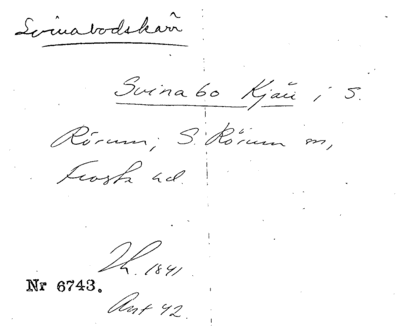 Svinabodskärr
Svinabo Kjär i S.
Rörum; S. Rörum sn,
Frosta hd.
Th. 1841
Nr 6743.
Ant 42.